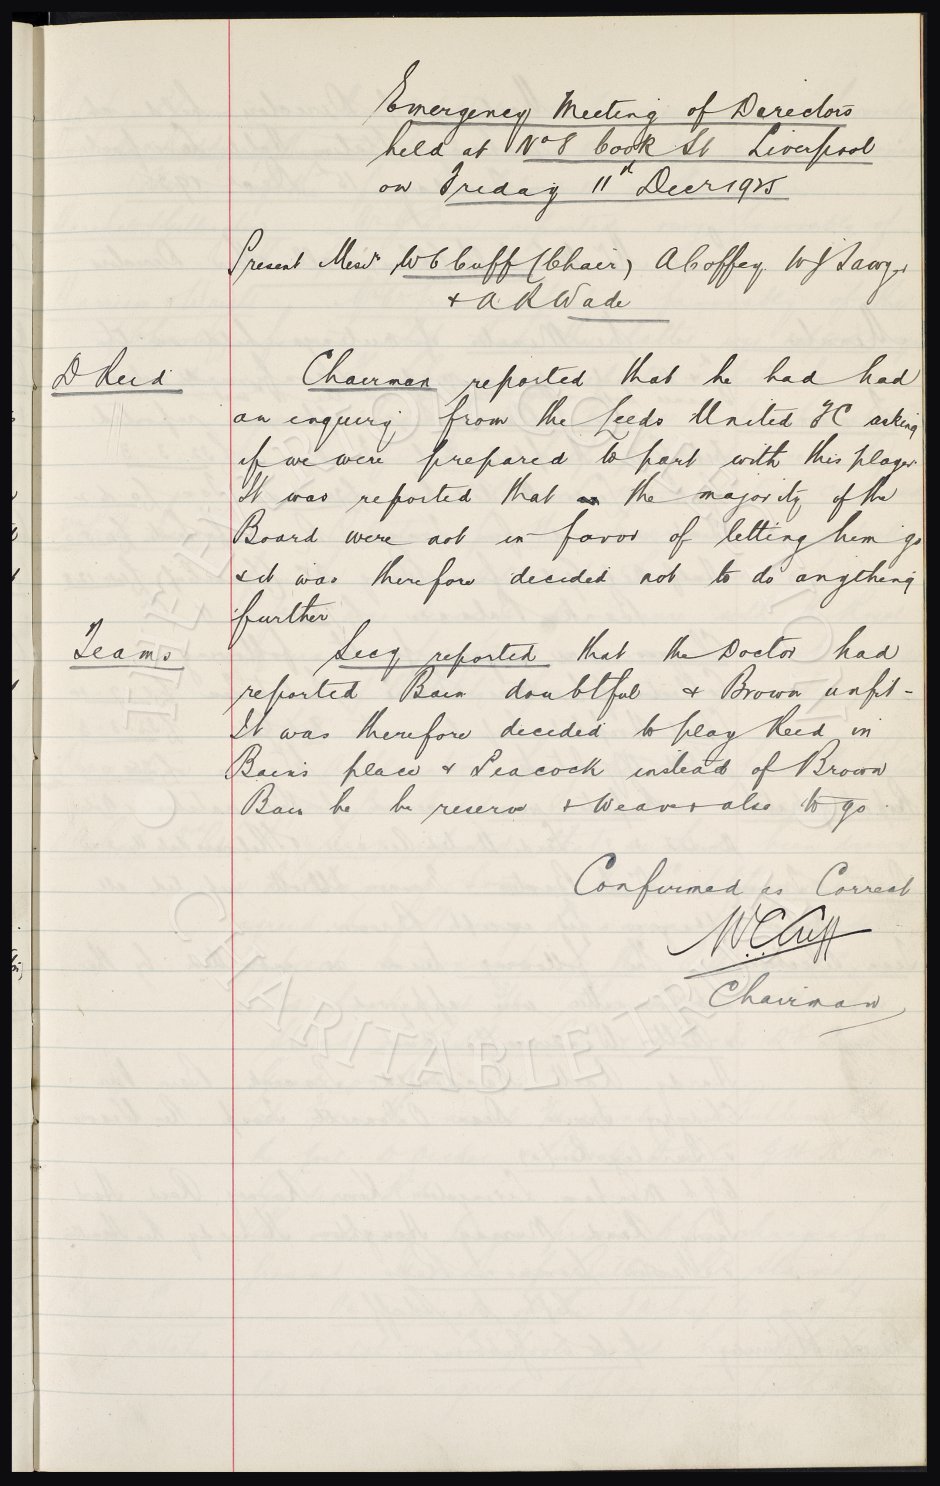 Emergency Meeting of Directors
held at No 8 Cook St Liverpool
on Friday 11th Decr 1925
Present Messrs W C Cuff (Chair) A Coffey W J Sawyer
& A R Wade
D Reid
Chairman reported that he had had
an enquiry from the Leeds United FC asking
if we were prepared to part with this player.
It was reported that the majority of the
Board were not in favor of letting him go
& it was therefore decided not to do anything
further
Teams
Secy reported that the Doctor had
reported Bain doubtful & Brown unfit -
It was therefore decided to play Reid in
Bain's place & Peacock instead of Brown
Bain be be reserve & Weaver also to go.
Confirmed as Correct
W.C. Cuff
Chairman
THE EVERTON COLLECTION
CHARITABLE TRUST